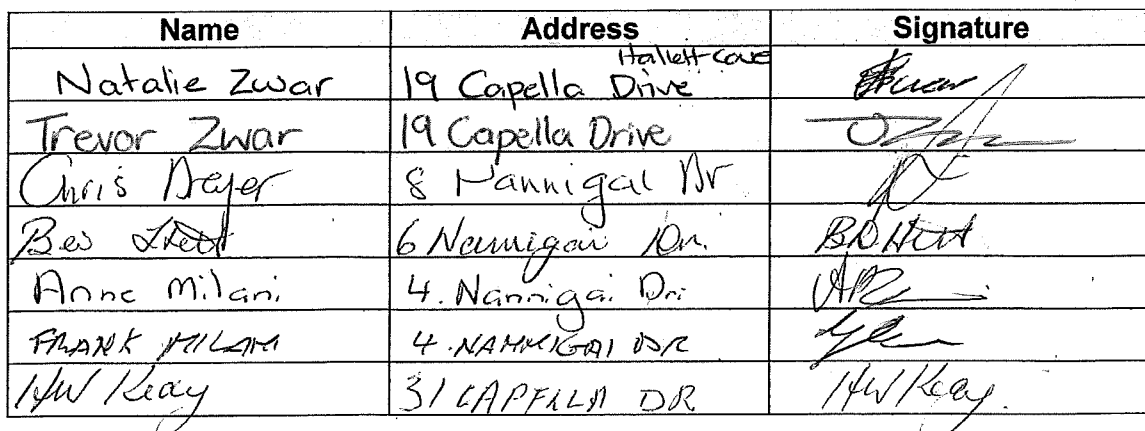 Name Address Signature
Natalie Zwar 19 Capella Drive Hallett Cove
Trevor Zwar 19 Capella Drive
Chris Dreyer 8 Nannigai Dr
Bev 6 Nannigai Dr.
Anne Milani 4. Nannigai Dri
FRANK MILANI 4. NANNIGAI DR
HW Keay 31 CAPELLA DR HW Keay.